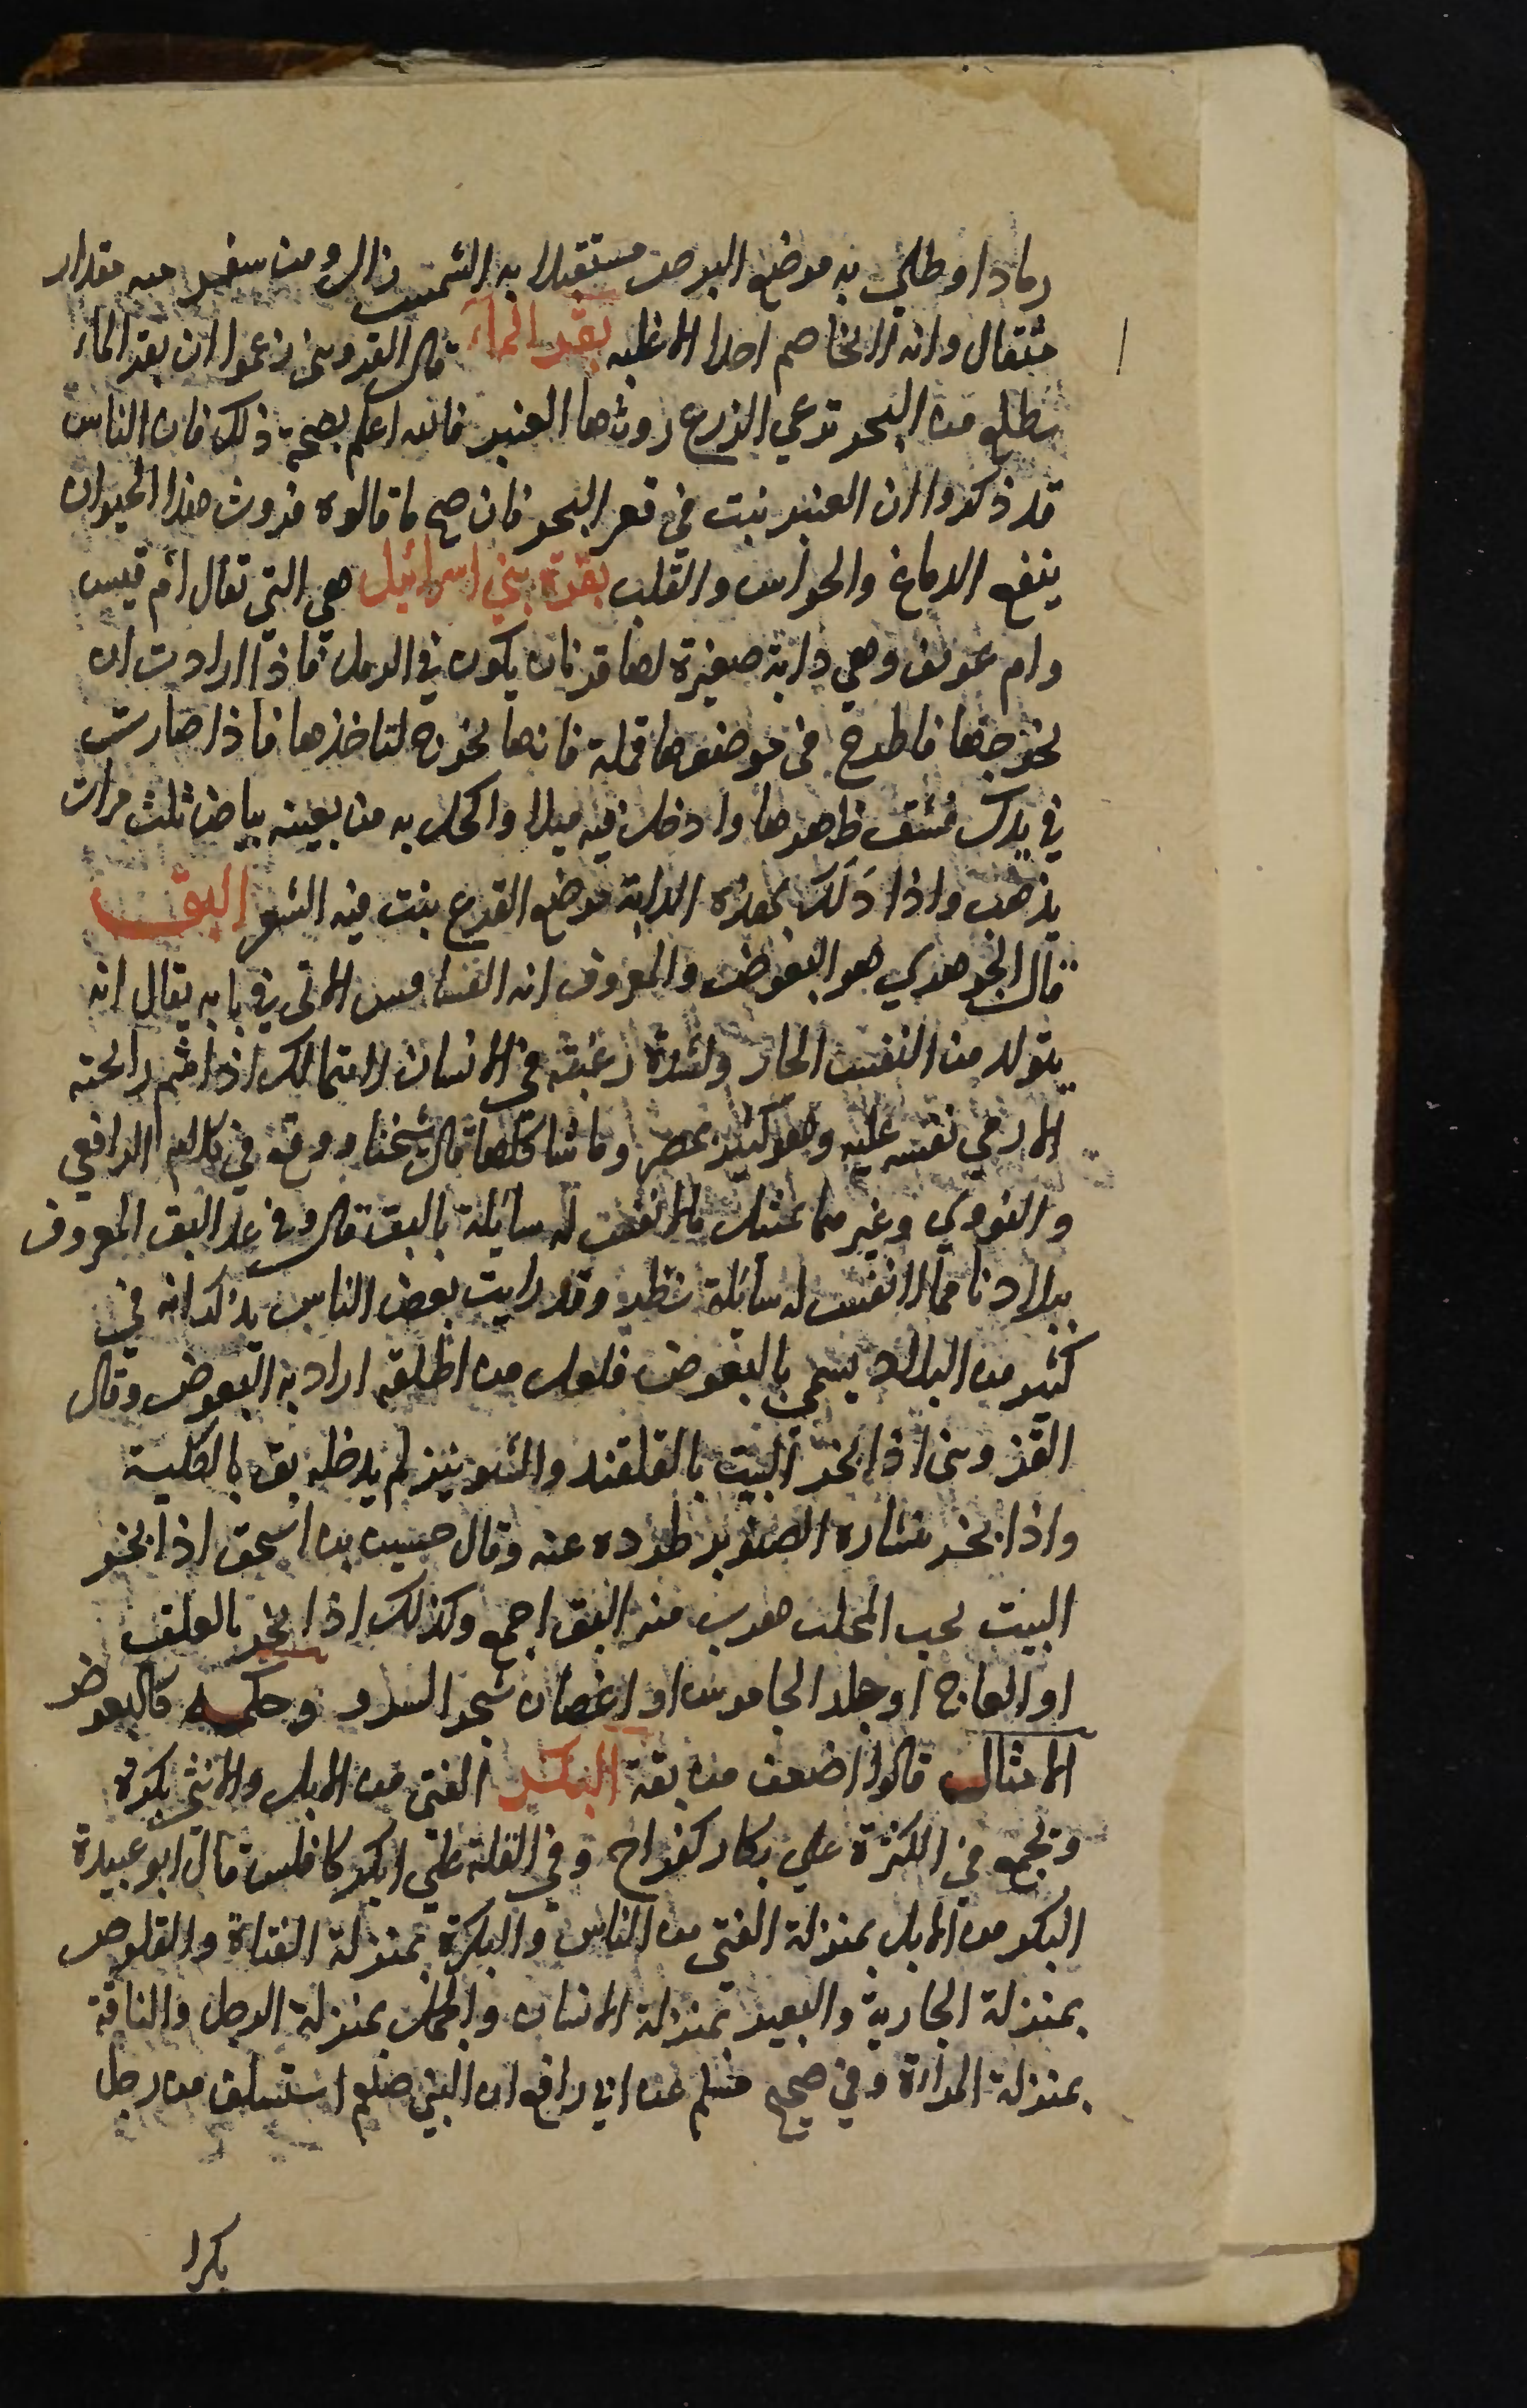 رمادا وطلي به موضع البرص مستقبلا به الشمس زال ومن سقي منه مقدار
مثقال وانه لا يخاصم احدا الا غلبه بقر الماء قال القزويني زعموا ان بقر الماء
يطلع من البحر ترعي الزرع روثها العنبر فالله اعلم بصحة ذلك فان الناس
قد ذكروا ان العنبر نبت في قعر البحر فان صح ما قالوه فروث هذا الحيوان
ينفع الدماغ والحواس والقلب بقرة بني اسرائيل هي التي تقال ام قيس
وام عويف وهي دابة صغيرة لها قرنان يكون في الرمل فاذا اردت ان
تخرجها فاطرح في موضعها قملة فانها تخرج لتاخذها فاذا صارت
في يدك فشق ظهرها وادخل فيه ميلا واكحل به من بعينه بياض ثلث مرات
يذهب واذا دلك بهذه الدابة موضع القرع ينبت فيه الشعر البق
قال الجوهري هو البعوض والمعروف انه الفسافس الاتي في بابه يقال انه
يتولد من النفس الحار ولشدة رغبته في الانسان لا يتمالك اذا شم رائحته
الا رمي نفسه عليه وهو كثير بمصر وما شاكلها قال شيخنا ووقع في كلام الرافعي
والنووي وغيرهما تمثيل ما لا نفس له سائلة بالبق قال وفي عد البق المعروف
ببلادنا مما لا نفس له سائلة نظر وقد رايت بعض الناس يذكر انه في
كثير من البلاد يسمى بالبعوض فلعل من اطلقه اراد به البعوض وقال
القزويني اذا بخر البيت بالقلقند والشونيز لم يدخله بق بالكلية
واذا بخر بنشاره الصنوبر طرده عنه وقال حنين بن اسحق اذا بخر
البيت بحب المحلب هرب منه البق اجمع وكذلك اذا بخر بالعلق
او العاج او جلد الجاموس او اغصان شجر السرو وحكمه كالبعوض
الامثال قالوا اضعف من بقة البكر الفتى من الابل والانثى بكرة
وتجمع في الكثرة علي بكار كفراخ وفي القلة علي ابكر كافلس قال ابو عبيدة
البكر من الابل بمنزلة الفتى من الناس والبكرة بمنزلة الفتاة والقلوص
بمنزلة الجارية والبعير بمنزلة الانسان والجمل بمنزلة الرجل والناقة
بمنزلة المراة وفي صحيح مسلم عن ابي رافع ان النبي صلعم استسلف من رجل
بكرا